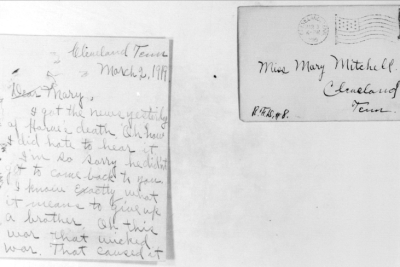 Cleveland Tenn
March 2, 1919
Dear Mary,
I got the news yesterday
of death Oh how
I did hate to hear it
I'm so sorry he didn't
get to come back to you
I know exactly what
it means to give up
a brother Oh this
war that wicked
war. That caused it
Miss Mary Mitchell.
Cleveland
Tenn.